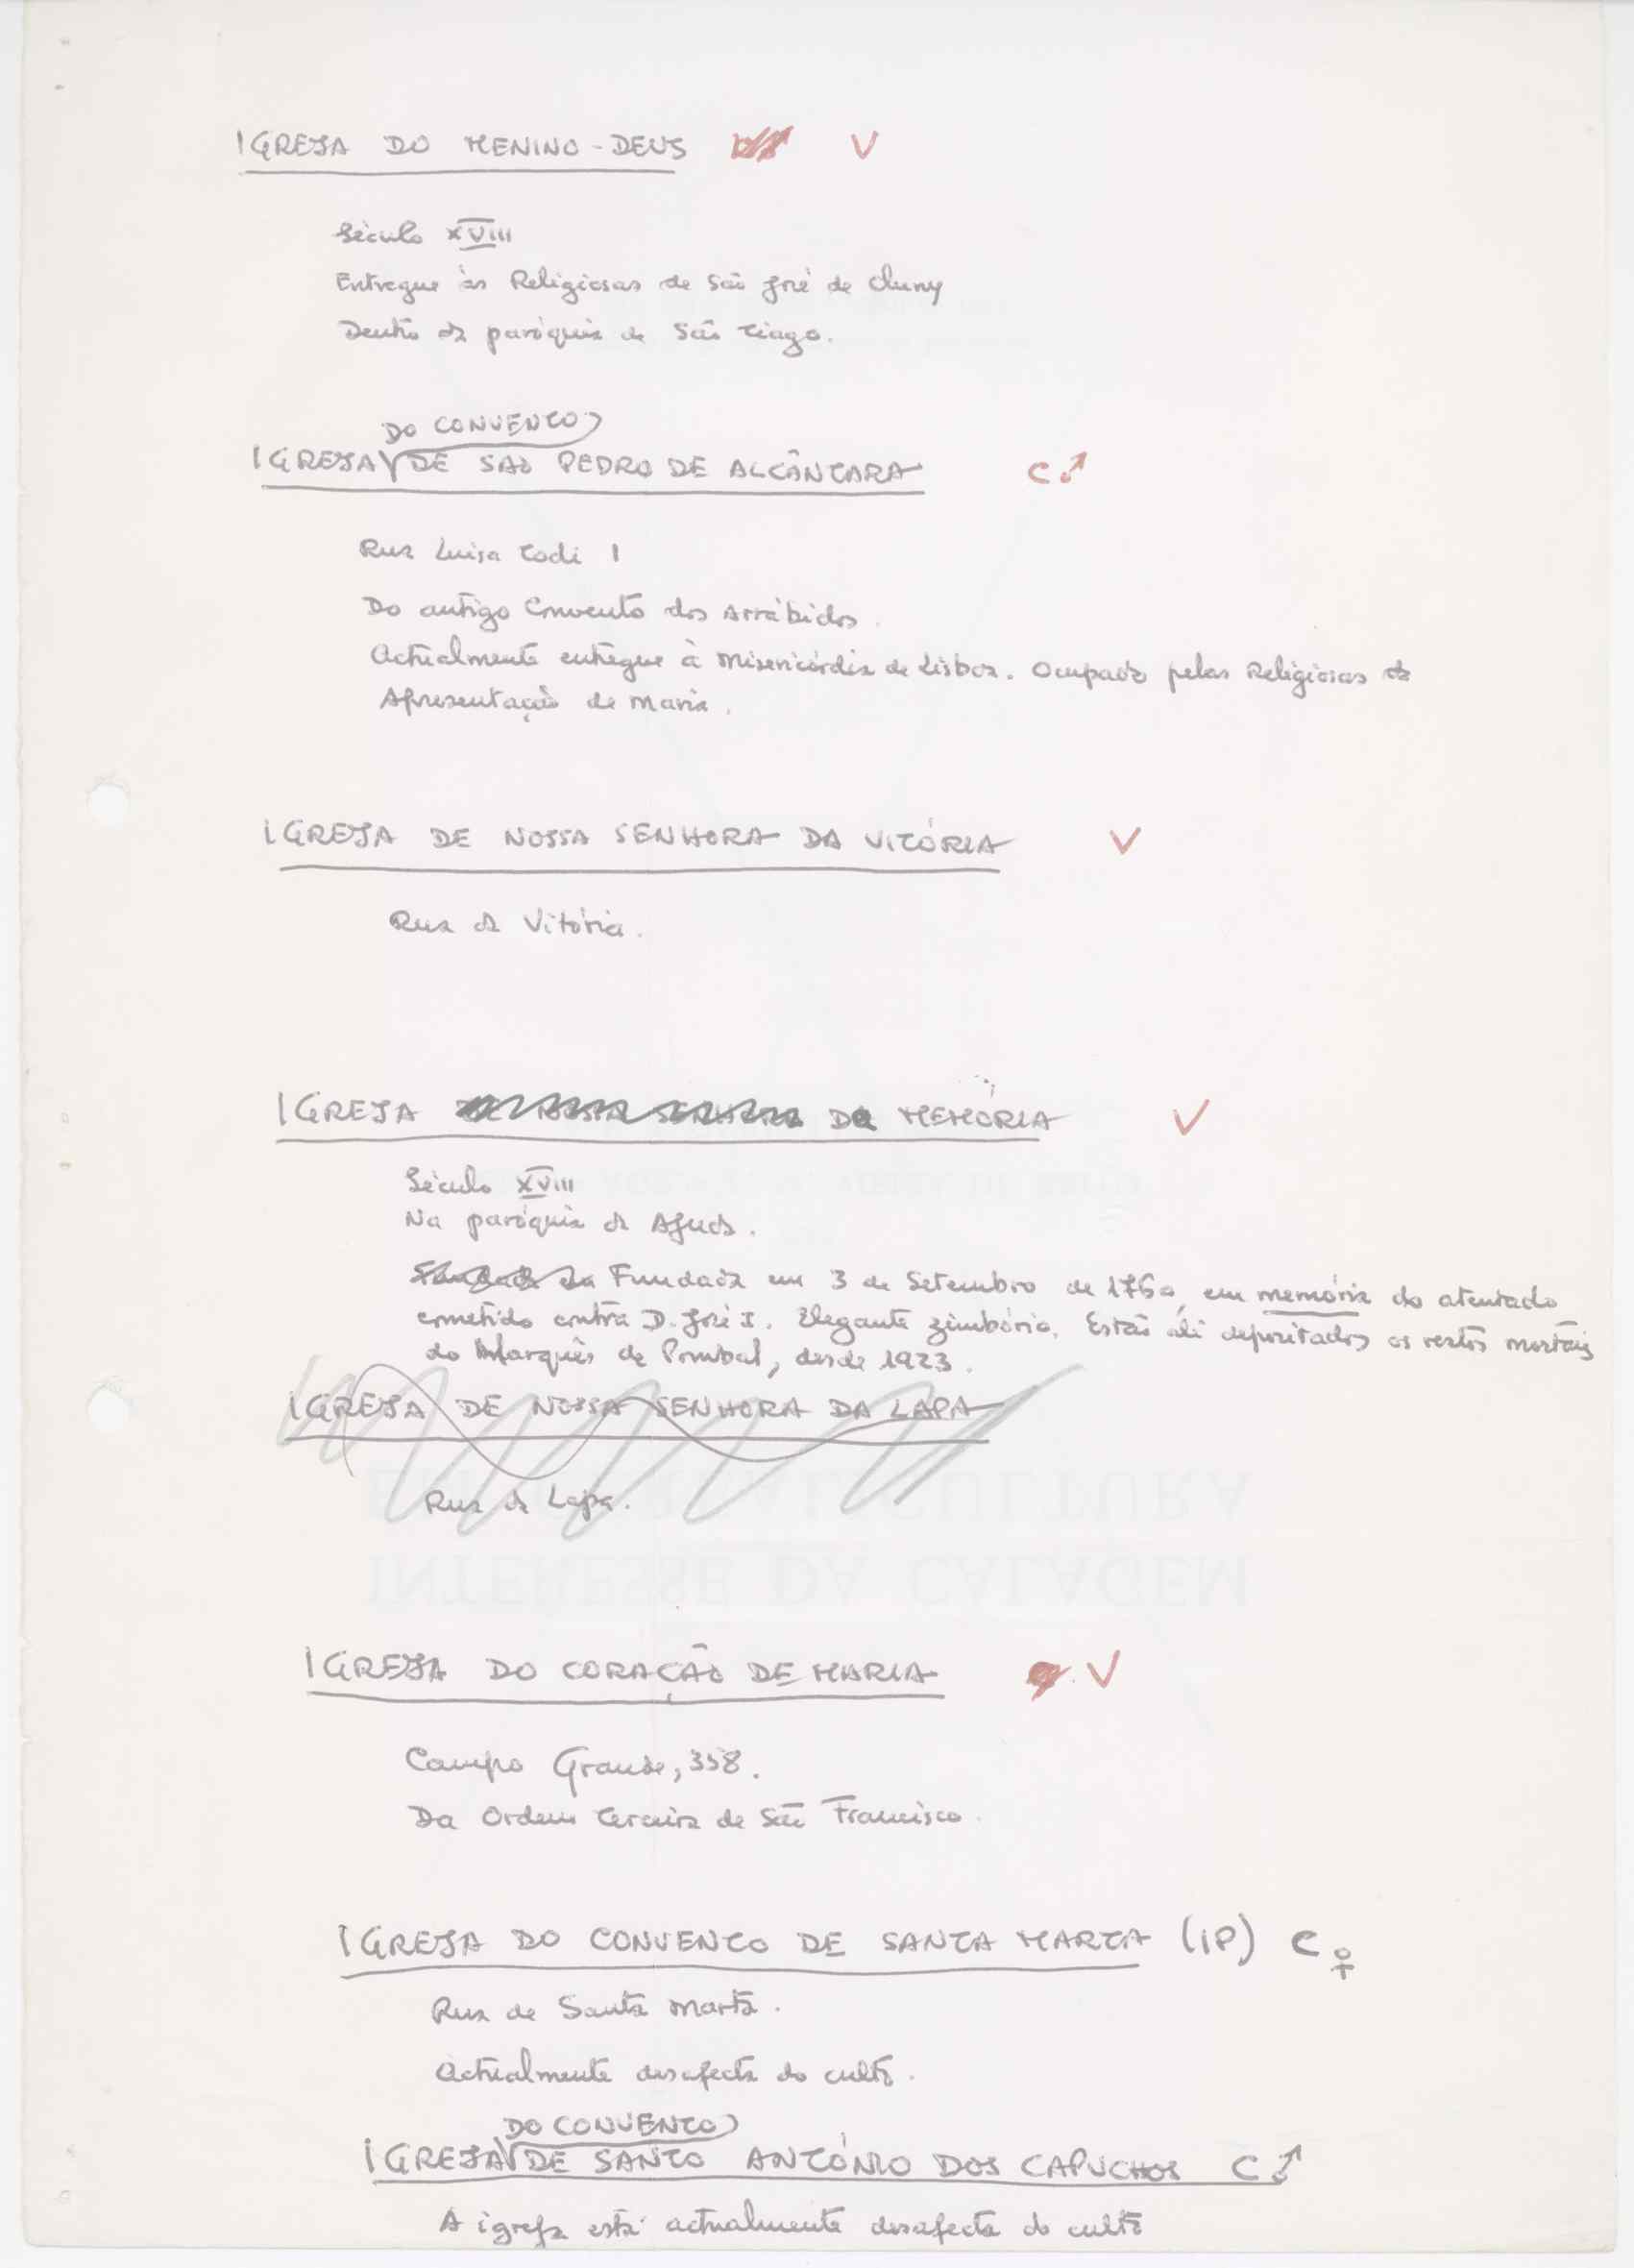 IGREJA DO MENINO-DEUS V
Século XVIII
Entregue às Religiosas de São José de Cluny
Dentro da paróquia de São Tiago.
DO CONVENTO
IGREJA DE SÃO PEDRO DE ALCÂNTARA C♂
Rua Luisa Todi 1
Do antigo Convento dos Arrábidos.
Actualmente entregue à Misericórdia de Lisboa. Ocupado pelas Religiosas da
Apresentação de Maria.
IGREJA DE NOSSA SENHORA DA VITÓRIA V
Rua da Vitória.
IGREJA DE NOSSA SENHORA DA MEMÓRIA V
Século XVIII
Na paróquia da Ajuda.
Fundada em 3 de Setembro de 1760, em memória do atentado
cometido contra D. José I. Elegante zimbório. Estão ali depositados os restos mortais
do Marquês de Pombal, desde 1923.
IGREJA DE NOSSA SENHORA DA LAPA
Rua da Lapa.
IGREJA DO CORAÇÃO DE MARIA V
Campo Grande, 358.
Da Ordem Terceira de São Francisco.
IGREJA DO CONVENTO DE SANTA MARTA (IP) C♀
Rua de Santa Marta.
Actualmente desafecta do culto.
DO CONVENTO
IGREJA DE SANTO ANTÓNIO DOS CAPUCHOS C♂
A igreja está actualmente desafecta do culto
EM PORTUGAL CULTURA
INTERESSE DA CALAGEM